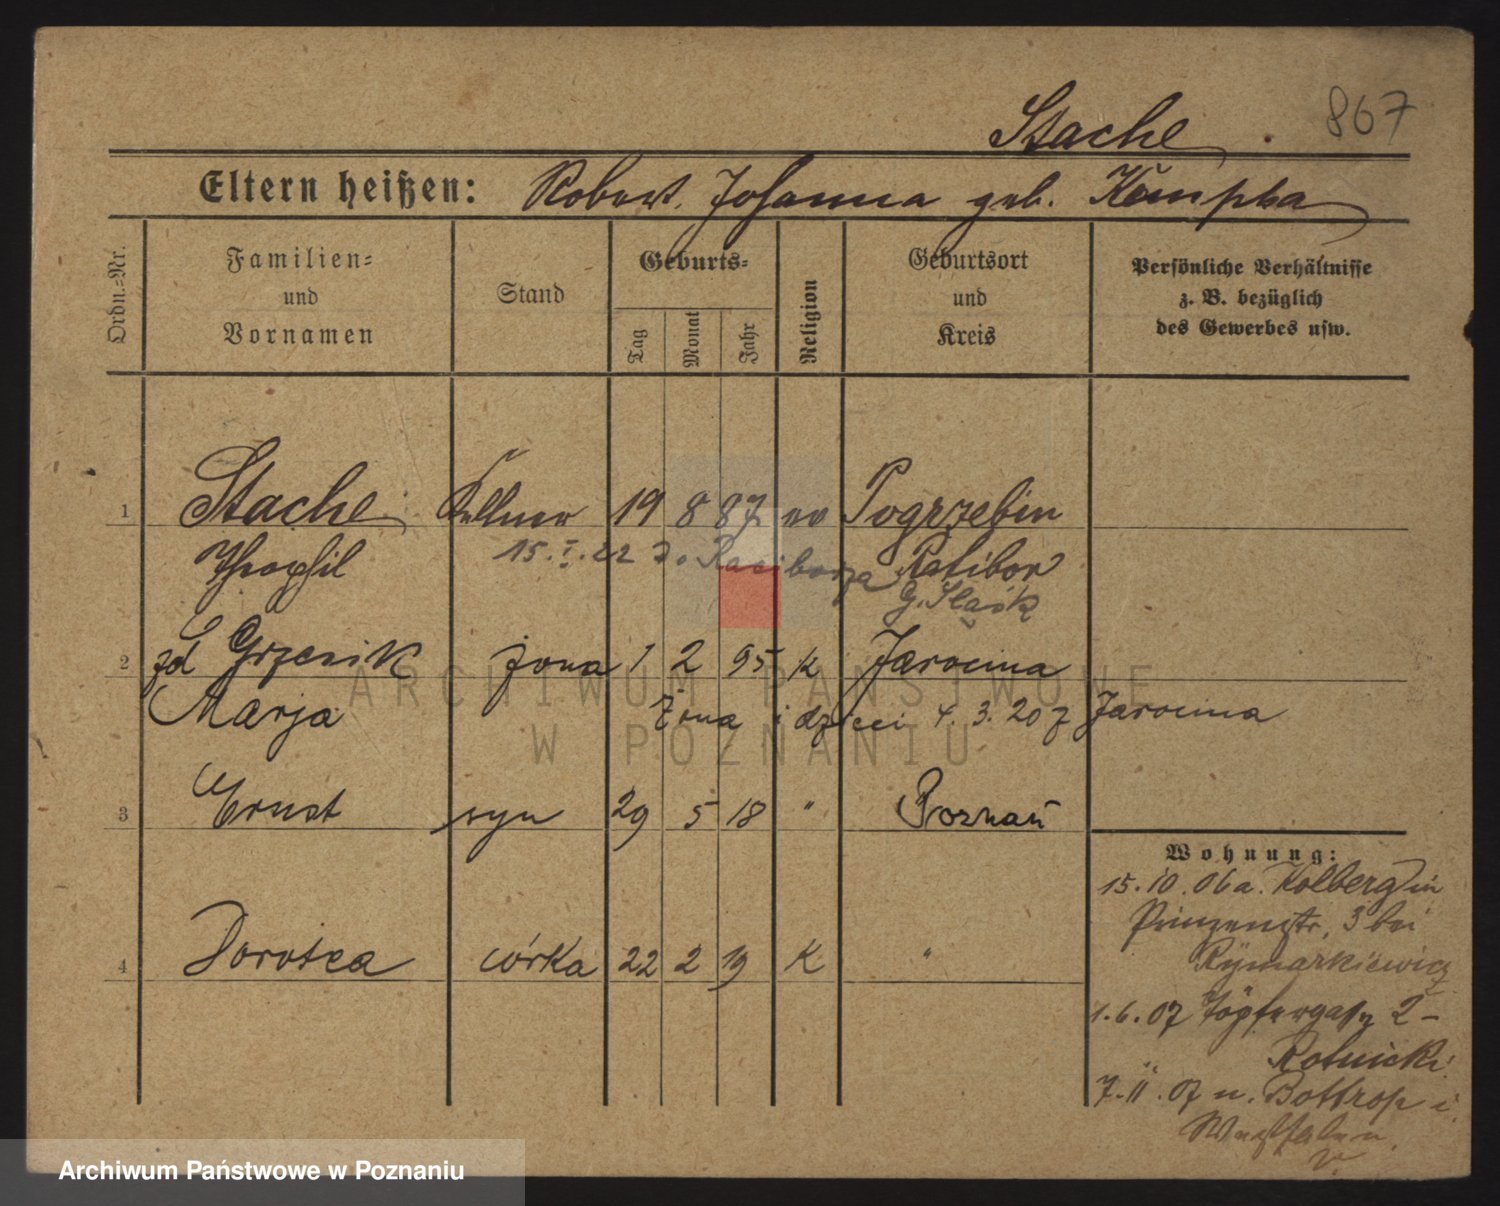 867
Stache
Eltern heißen: Robert, Johanna geb. Kempka
Ordn.-Nr.
Familien- und Vornamen
Stand
Geburts-
Tag
Monat
Jahr
Religion
Geburtsort und Kreis
Persönliche Verhältnisse z. B. bezüglich des Gewerbes usw.
1 Stache Kellner 19 8 87 ev Pogrzebin
Theophil 15.I.22 do Raciborza Ratibor
G. Śląsk
2 zd Grzesik żona 1 2 95 k Jarocina
Marja Żona i dzieci 4.3.20 z Jarocina
3 Ernst syn 29 5 18 " Poznań
Wohnung:
15.10.06 a. Kolberg in
Prinzenstr. 3 bei
Rymarkiewicz
4 Dorotea córka 22 2 19 K "
1.6.07 Töpfergasse 2 -
Rotnicki
7.11.07 n. Bottrop i.
Westfalen
ARCHIWUM PAŃSTWOWE
W POZNANIU
Archiwum Państwowe w Poznaniu